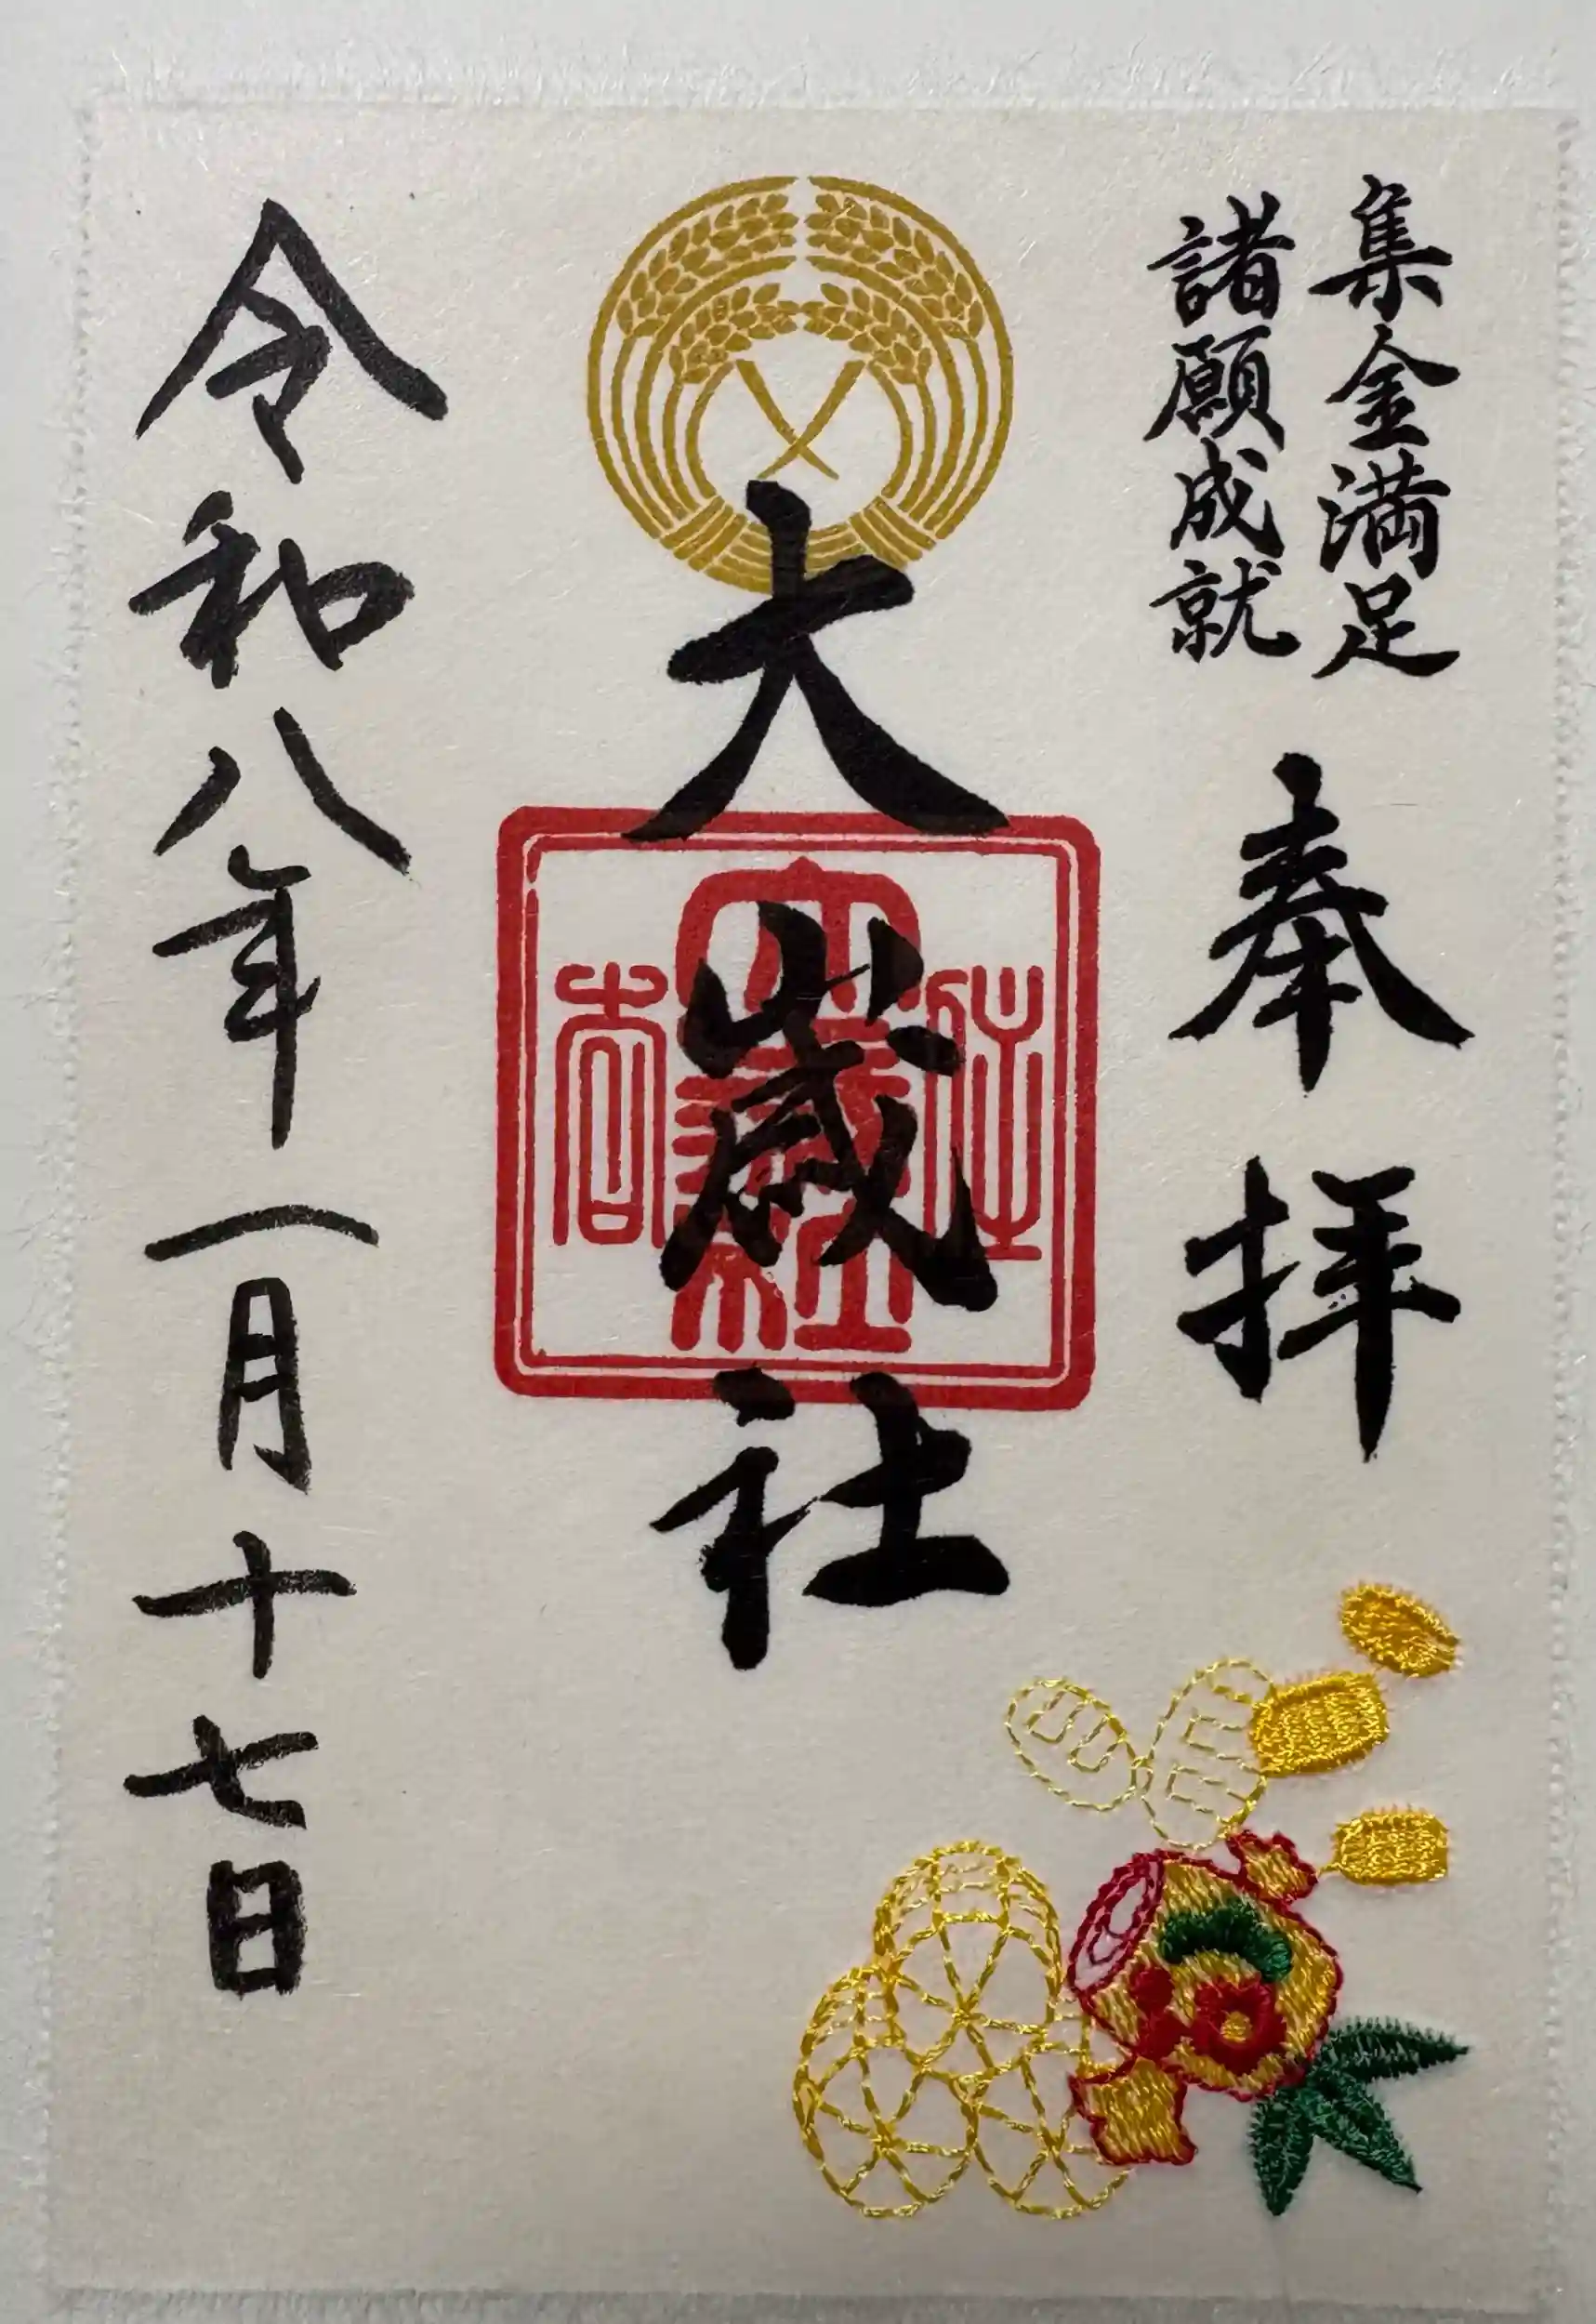 集金満足
諸願成就
奉拝
大歳社
住
大歳社
吉
令和八年一月十七日